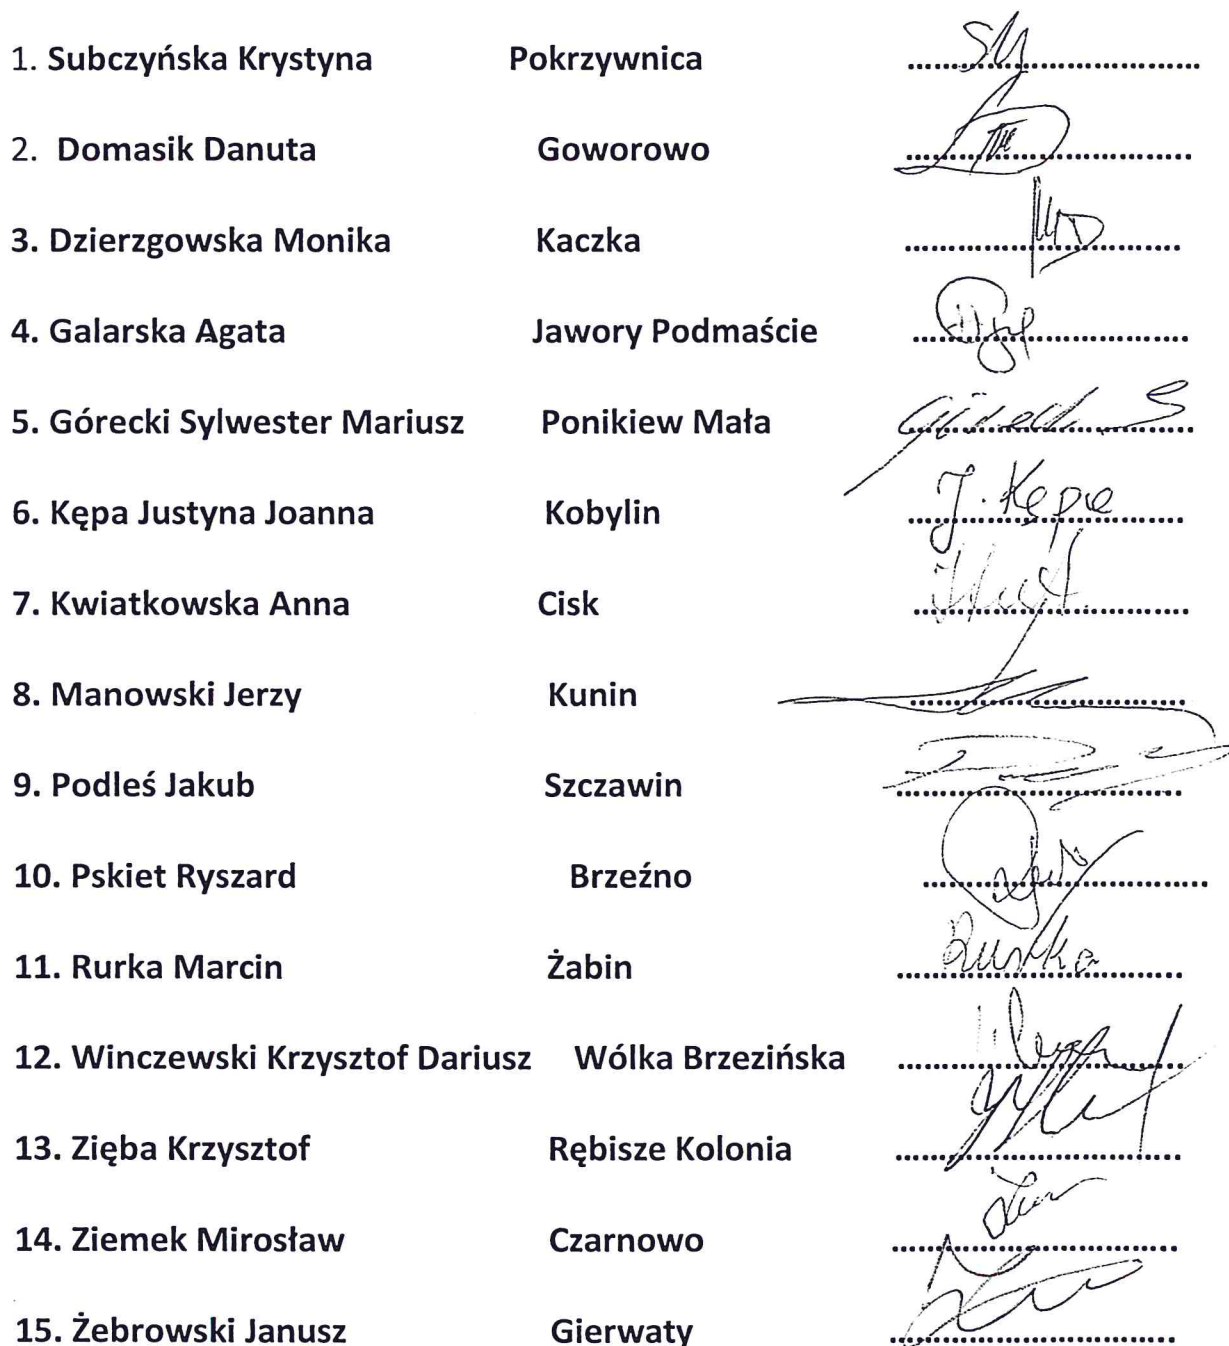 1. Subczyńska Krystyna Pokrzywnica
2. Domasik Danuta Goworowo
3. Dzierzgowska Monika Kaczka
4. Galarska Agata Jawory Podmaście
5. Górecki Sylwester Mariusz Ponikiew Mała
6. Kępa Justyna Joanna Kobylin J. Kępa
7. Kwiatkowska Anna Cisk
8. Manowski Jerzy Kunin
9. Podleś Jakub Szczawin
10. Pskiet Ryszard Brzeźno
11. Rurka Marcin Żabin
12. Winczewski Krzysztof Dariusz Wólka Brzezińska
13. Zięba Krzysztof Rębisze Kolonia
14. Ziemek Mirosław Czarnowo
15. Żebrowski Janusz Gierwaty